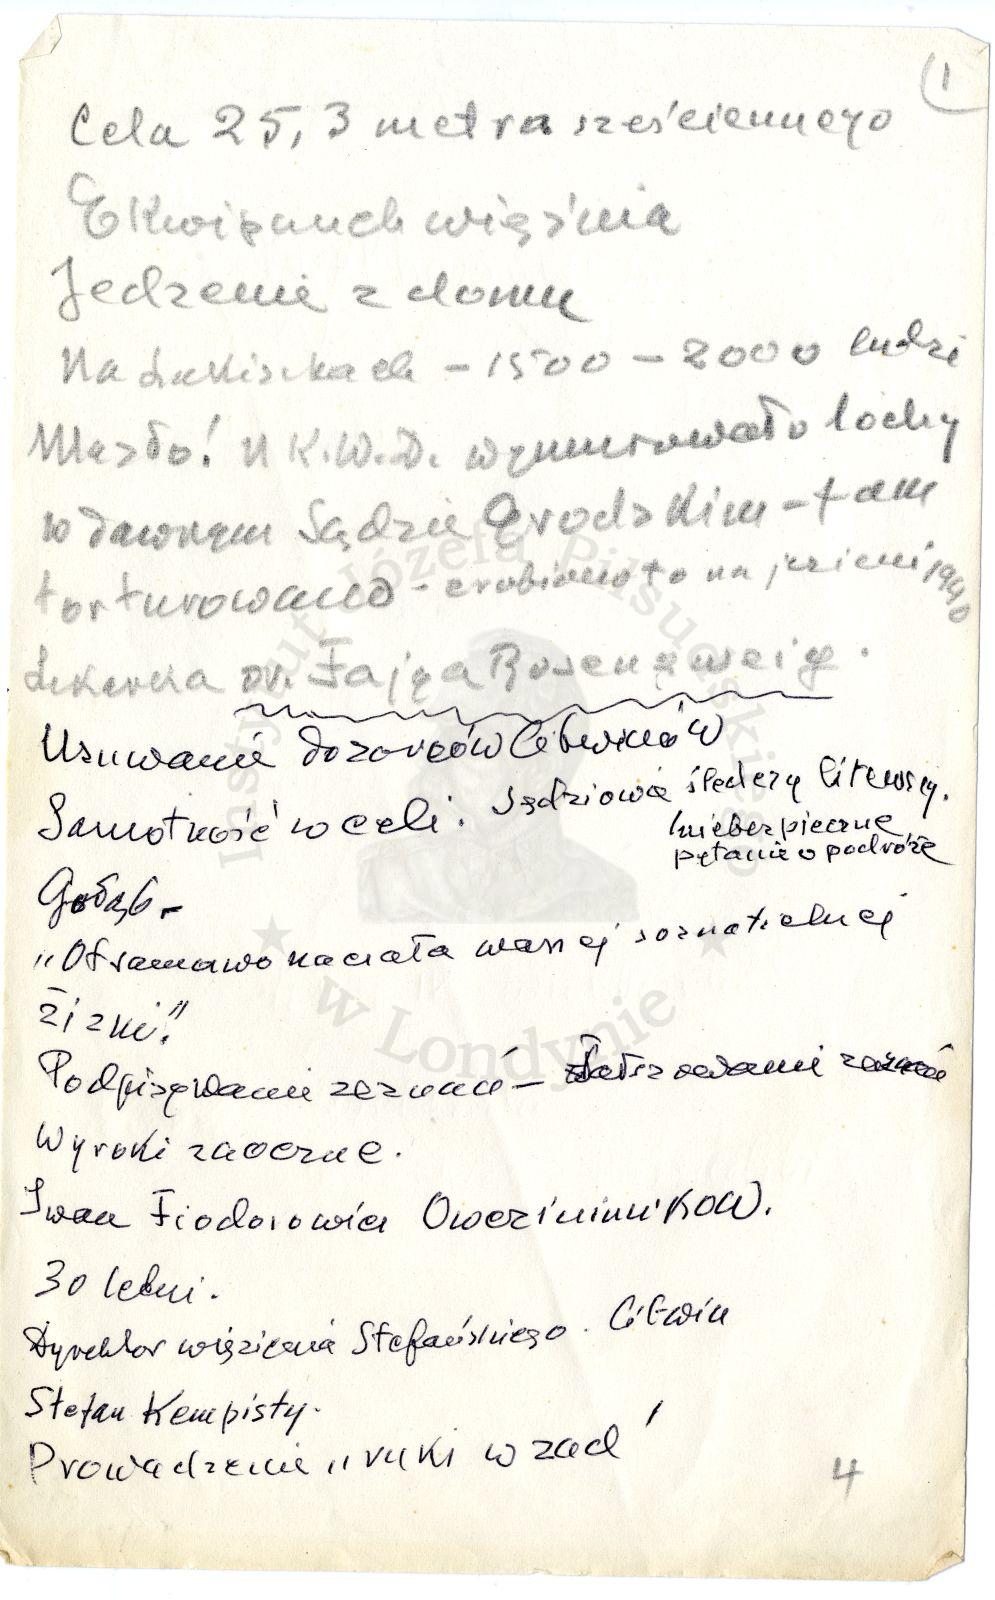 1
Cela 25,3 metra sześciennego
Ekwipunek więźnia
Jedzenie z domu
Na Łukiszkach – 1500 – 2000 ludzi
Masło! N.K.W.D. wymurowało lochy
w dawnym Sądzie Grodzkim – tam
torturowano – zrobiono to na jesieni 1940
Lekarka dr. Fajga Rosenzweig.
Usuwanie dozorców Litwinów
Samotność w celi. Sędziowie śledczy litewscy.
niebezpieczne
pytanie o podróże
Gołąb –
„Otsamawo naczała waszej soznatielnej
żizni!"
Podpisywanie zeznań – fałszowanie zeznań
Wyroki zaoczne.
Iwan Fiodorowicz Owczininnikow.
30 letni.
Dyrektor więzienia Stefańskiego. Litwin
Stefan Kempisty.
Prowadzenie „ruki w zad"
4
Instytut Józefa Piłsudskiego
w Londynie